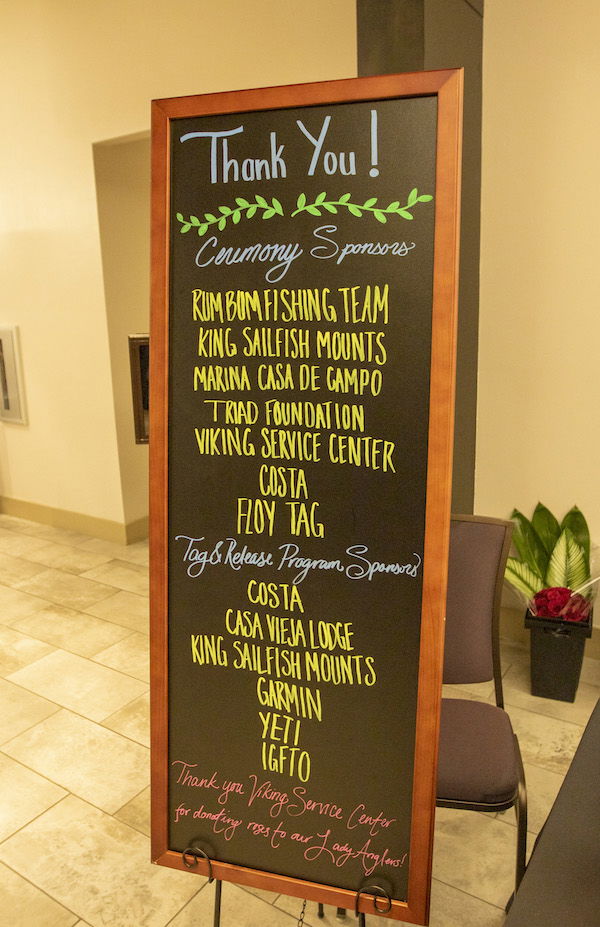 Thank You!
Ceremony Sponsors
RUM BUM FISHING TEAM
KING SAILFISH MOUNTS
MARINA CASA DE CAMPO
TRIAD FOUNDATION
VIKING SERVICE CENTER
COSTA
FLOY TAG
Tag & Release Program Sponsors
COSTA
CASA VIEJA LODGE
KING SAILFISH MOUNTS
GARMIN
YETI
IGFTO
Thank you Viking Service Center
for donating roses to our Lady Anglers!